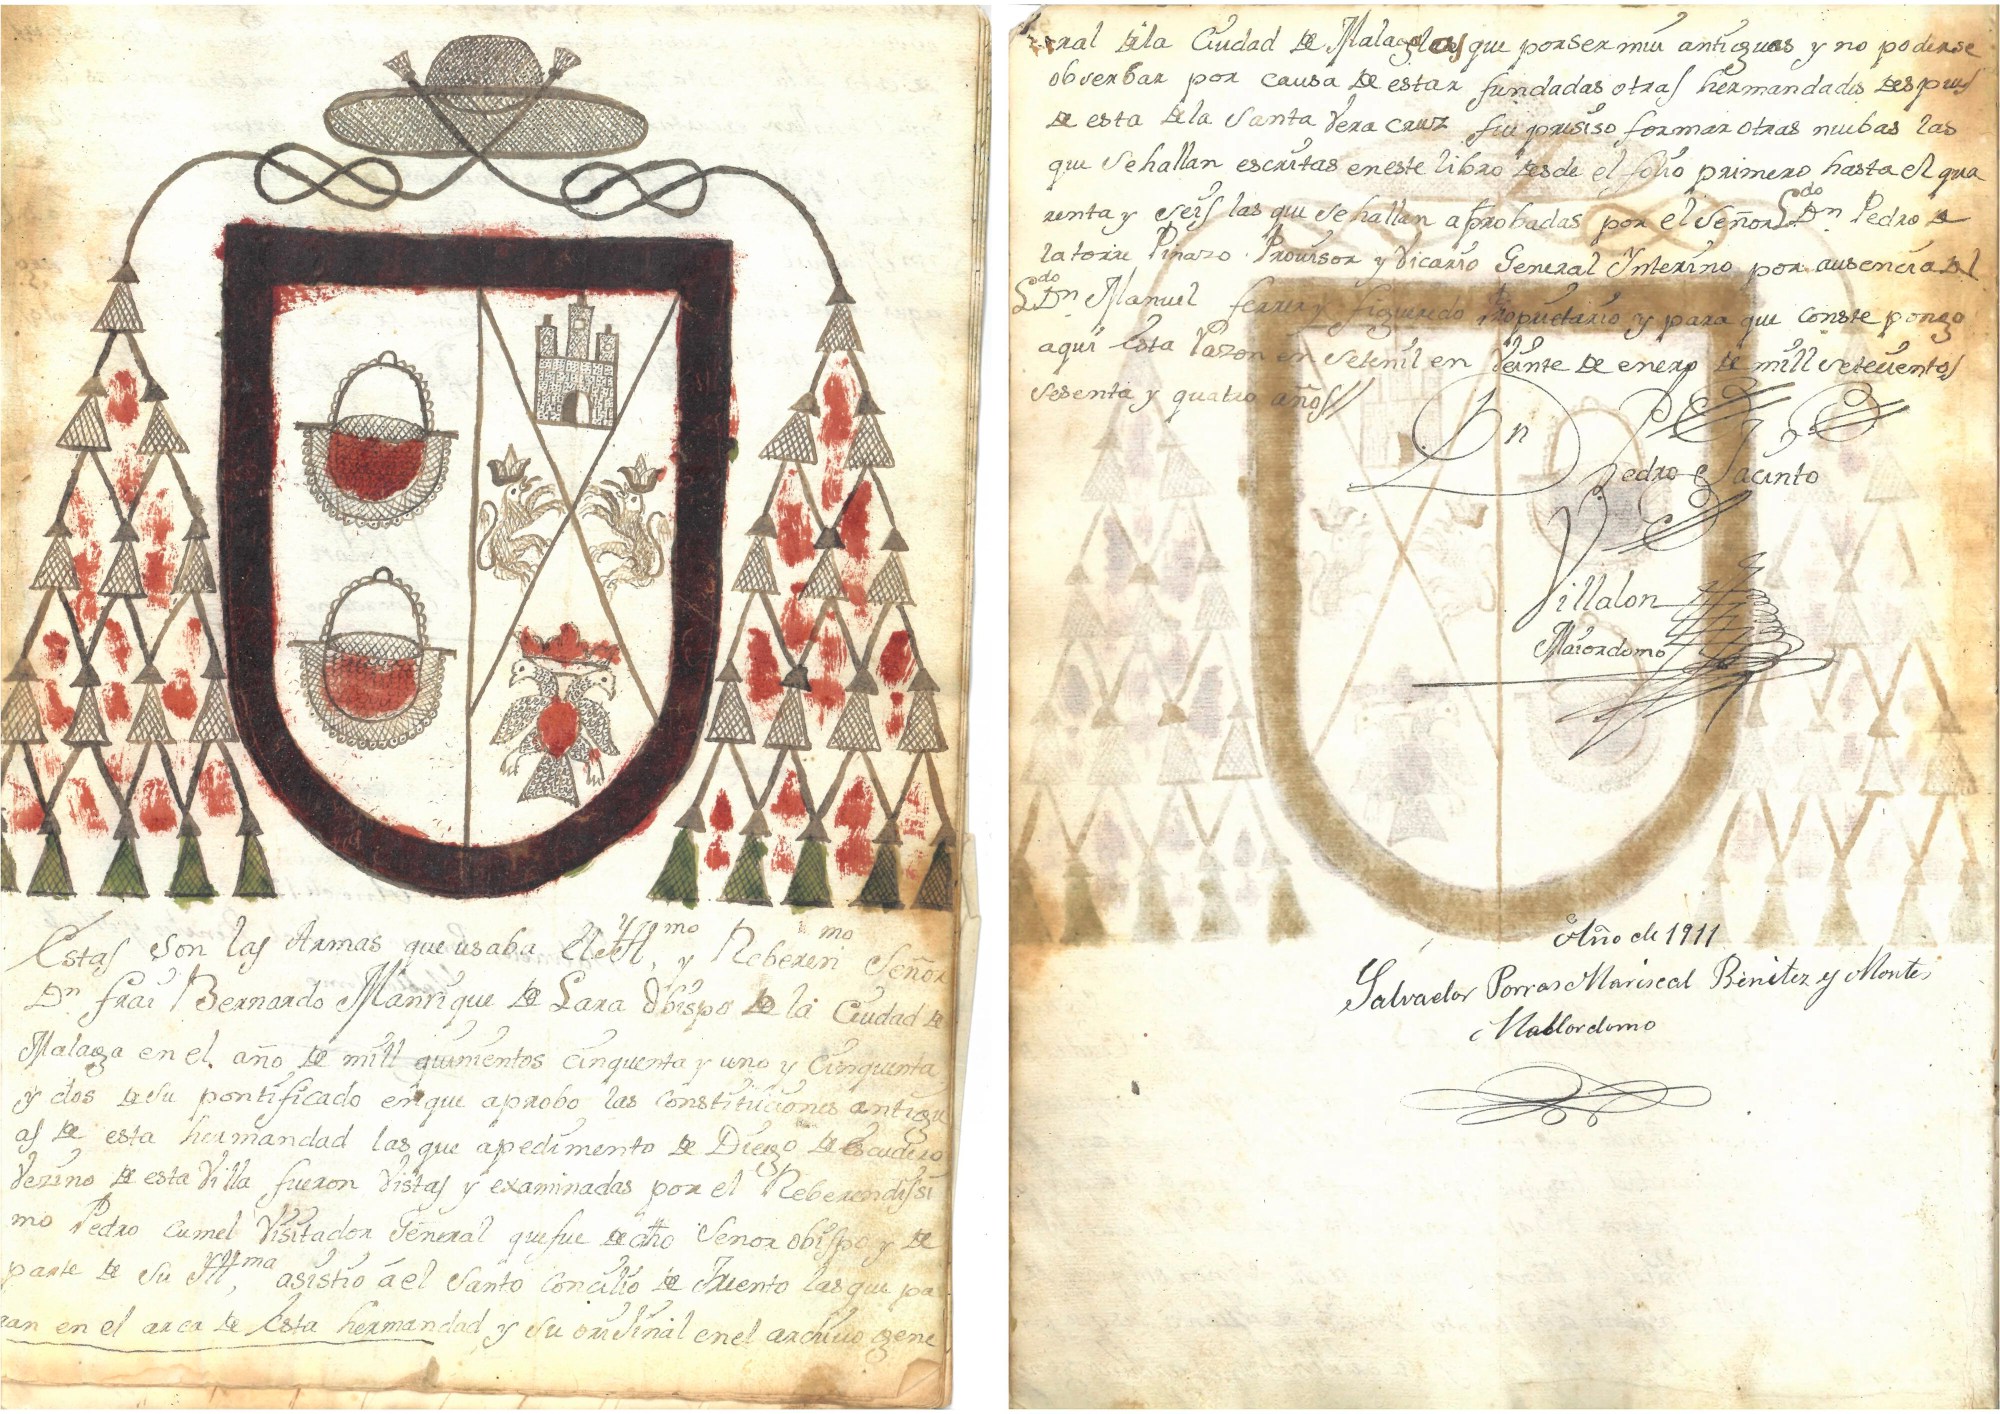 Estas son las Armas que usaba el Yllmo, y Reberenmo Señor
Dn frai Bernardo Manrique de Lara Obispo de la Ciudad de
Malaga en el año de mill quinientos cinquenta y uno y cinquenta
y dos de su pontificado en que aprobo las constituciones antigu
as de esta hermandad las que apedimento de Diego de escudero
Vezino de esta Villa fueron Vistas y examinadas por el Reberendissi
mo Pedro cumel Visitador General que fue de dho Señor obispo, y de
parte de su Yllma, asistio á el Santo concilio de Trento las que pa
ran en el arca de Esta hermandad, y su orijinal en el archivo gene
ral de la Ciudad de Malaga las que por ser mui antiguas y no poderse
obserbar por causa de estar fundadas otras hermandades despues
de esta de la Santa Vera Cruz fue presiso formar otras nuebas las
que se hallan escritas en este libro desde el folio primero hasta el qua
renta y seis las que se hallan aprobadas por el Señor Ldo Dn Pedro de
la torre Pinazo Provisor y Vicario General Ynterino por ausencia del
Ldo Dn Manuel ferrer y figueredo Propuetario y para que conste pongo
aqui Esta Razon en Setenil en Veinte de enero de mill setecientos
sesenta y quatro años//
Dn Pedro Jacinto
Villalon
Maiordomo
Año de 1911
Salvador Porras Mariscal Benitez y Montes
Mallordomo